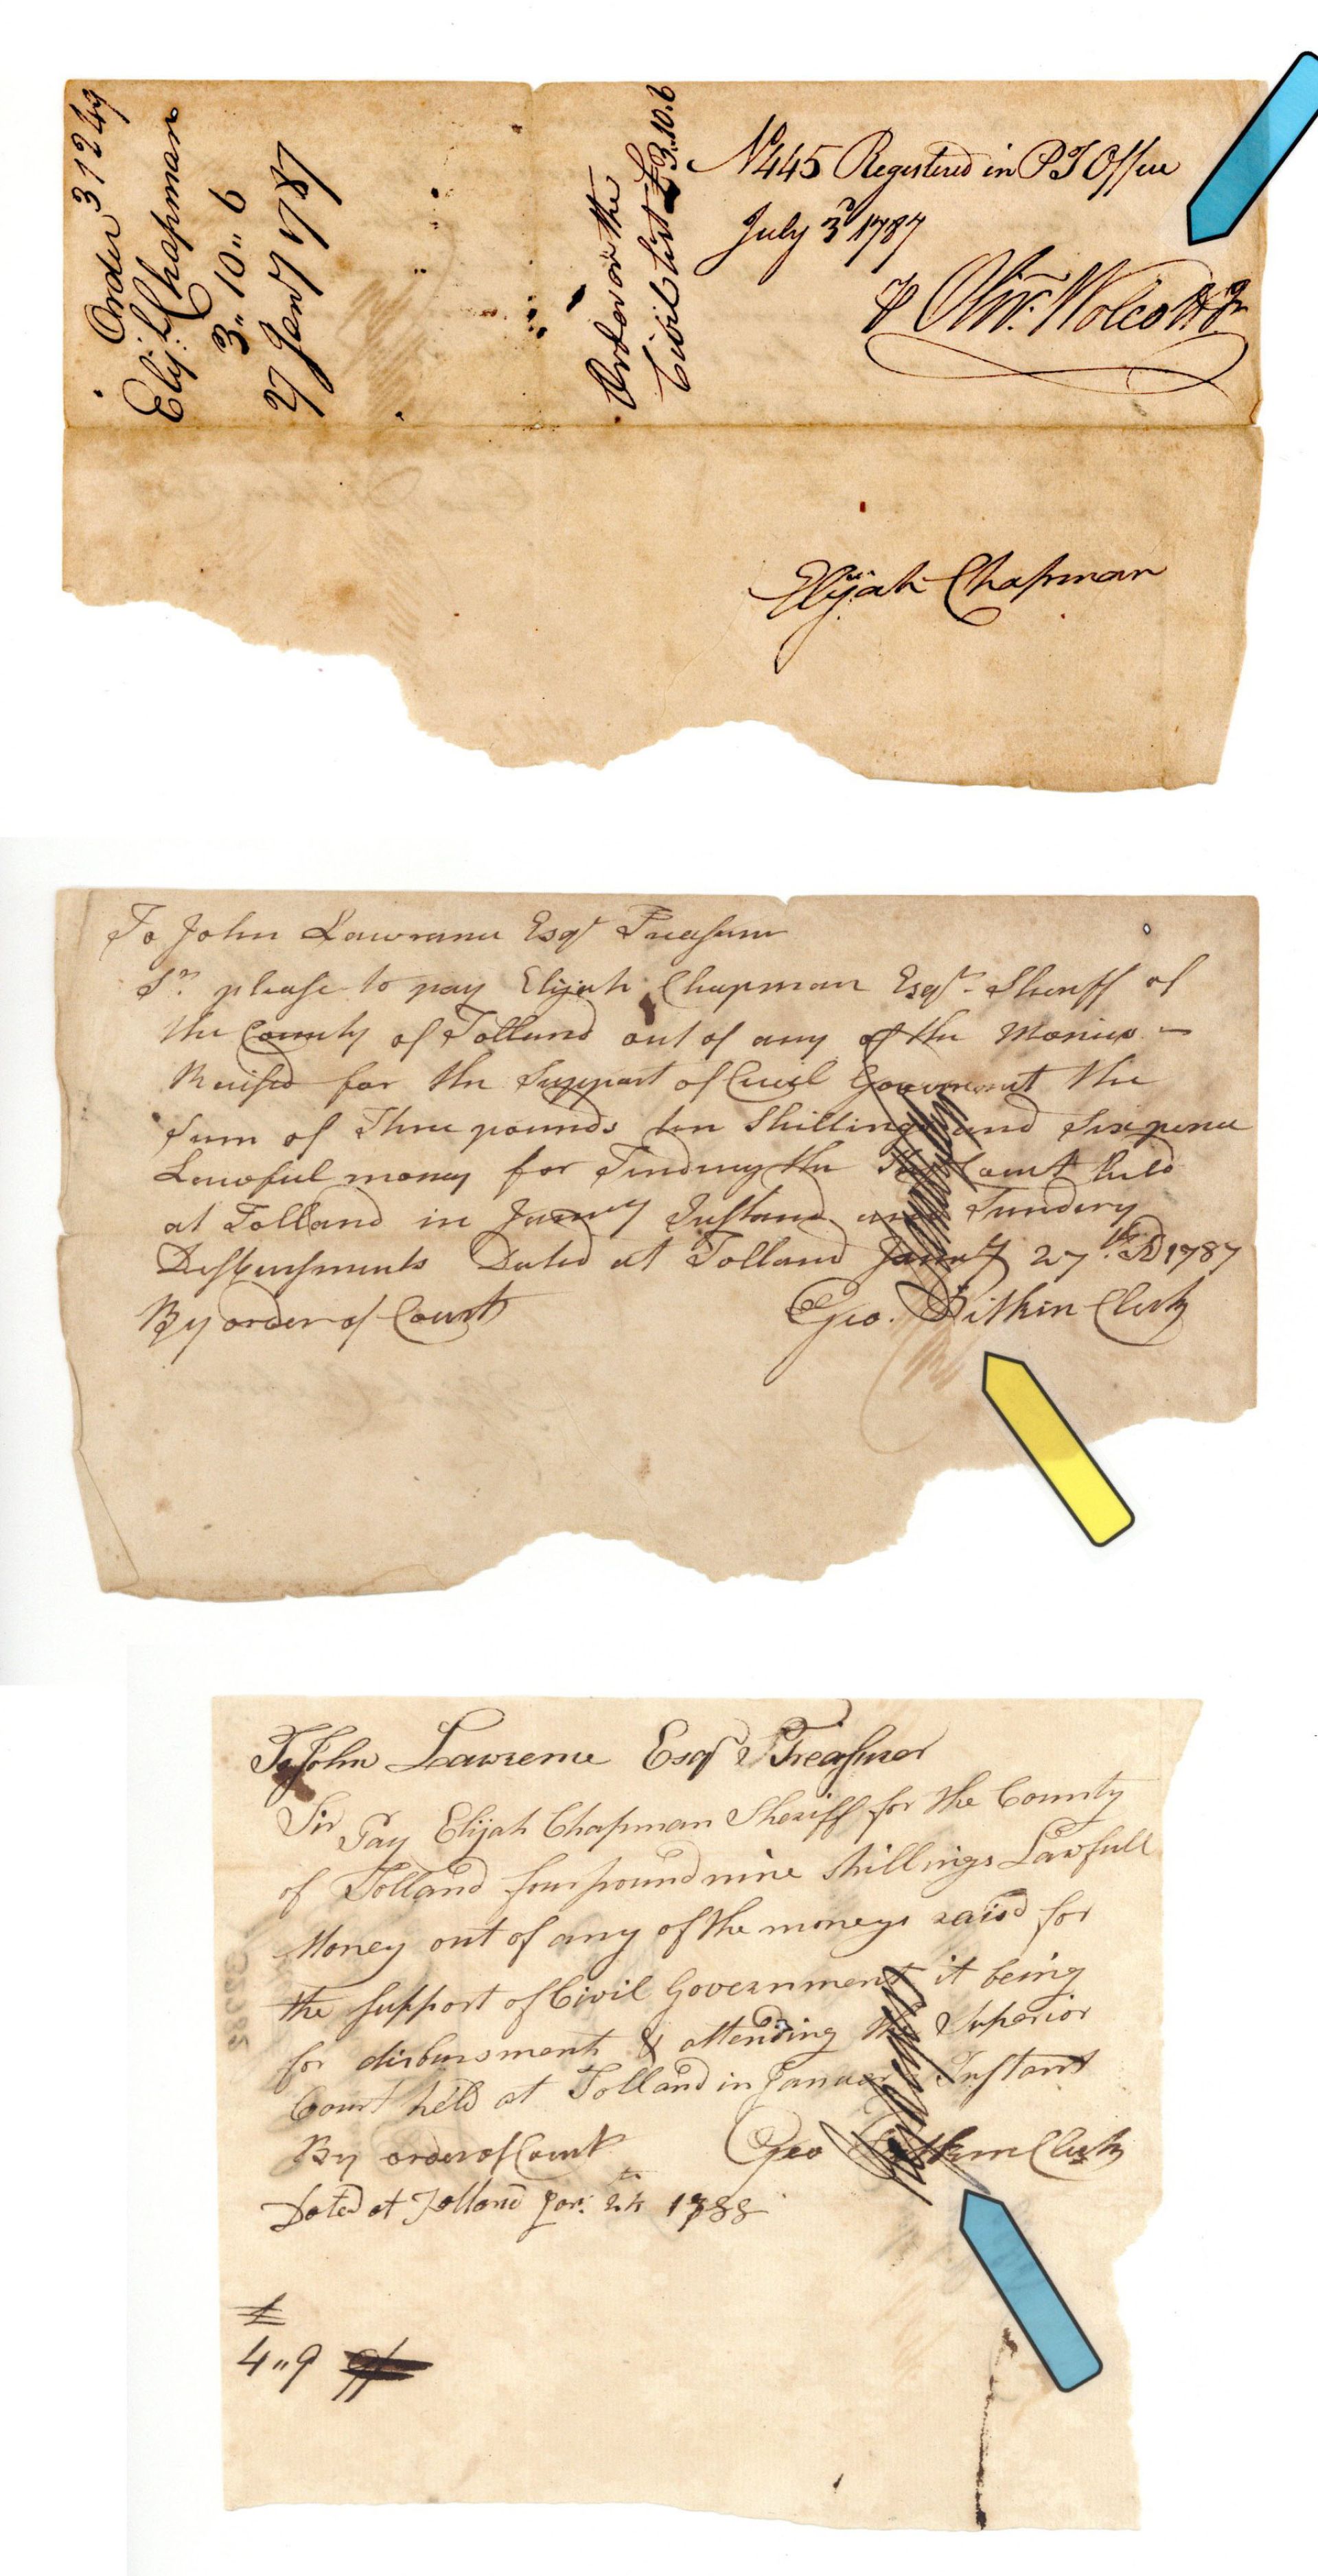 Order 31249
Elij. Chapman
3,, 10,, 6
27 Jany 1787
Order on the
Civil List £3.10.6
No 445 Registered in P T Office
July 3d 1787
P Olivr. Wolcott Jr
Elijah Chapman
To John Lawrance Esqr Treasurer
Sr. please to pay Elijah Chapman Esqr. Sheriff of
the County of Tolland out of any of the Monies
Raised for the Support of Civil Goverment the
Sum of Three pounds ten Shillings and Sixpence
Lawful money for Tending the Supr Court held
at Tolland in Jany Instant and Sundery
Disbursments Dated at Tolland Jany 27th AD 1787
By order of Court
Geo. Pitkin Clerk
To John Lawrence Esqr Treasurer
Sir Pay Elijah Chapman Sheriff for the County
of Tolland four pound nine shillings Lawfull
Money out of any of the moneys raisd for
the support of Civil Government it being
for disbursment & attending the Superior
Court held at Tolland in January Instant
By order of Court
Geo Pitkin Clerk
Dated at Tolland Jan: 24th 1788
£
4,,9